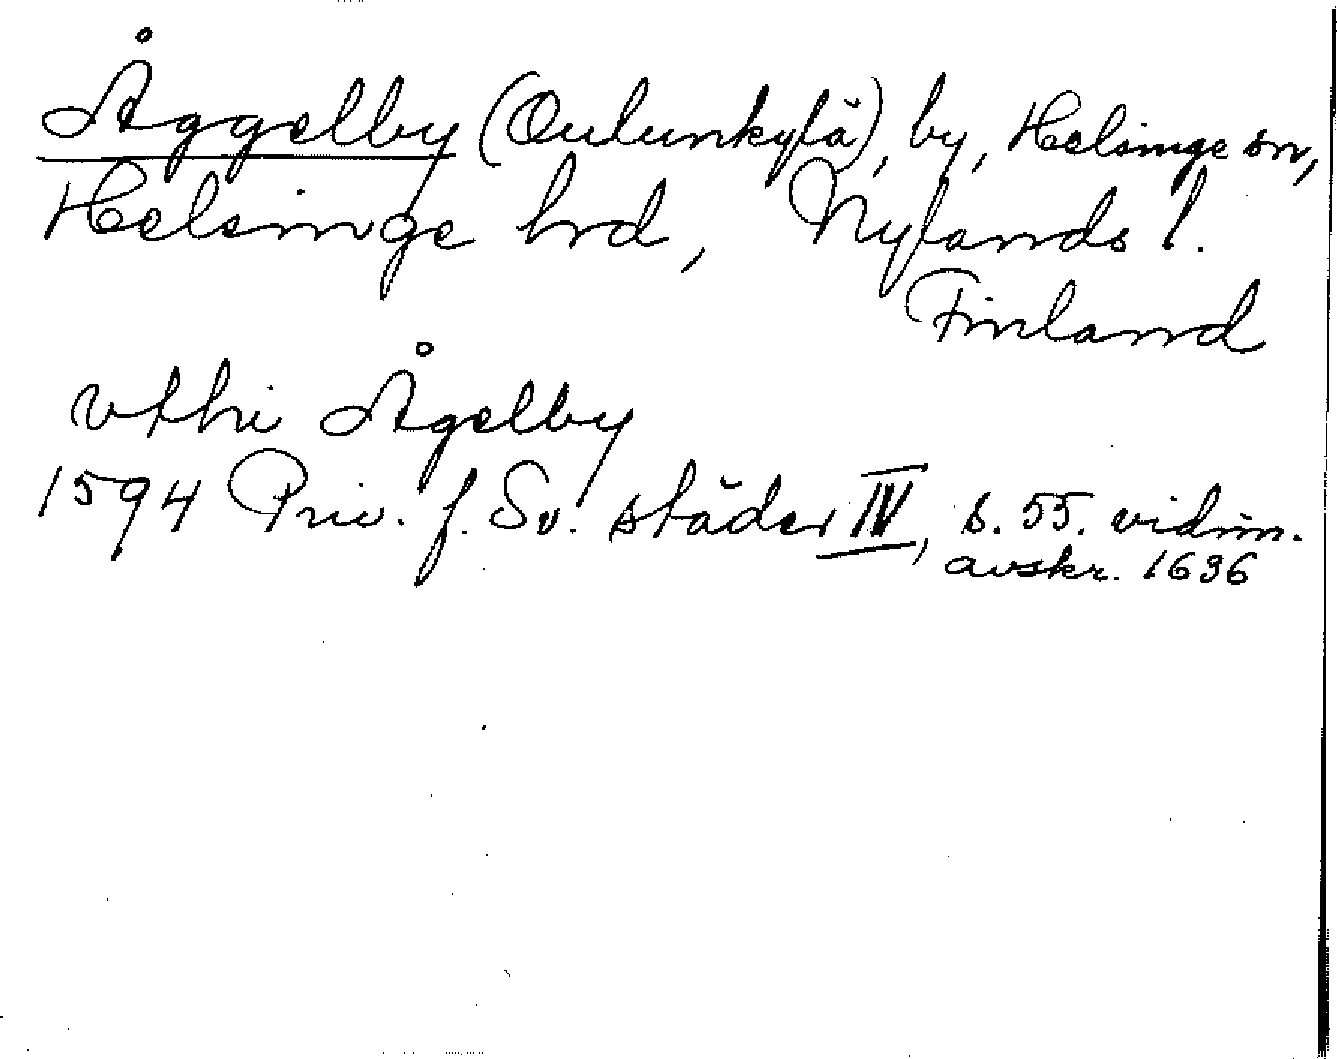 Åggelby (Oulunkylä), by, Helsinge sn,
Helsinge hrd, Nylands l.
Finland
vthi Ågelby
1594 Priv. f. Sv. städer IV, s. 55. vidim.
avskr. 1636